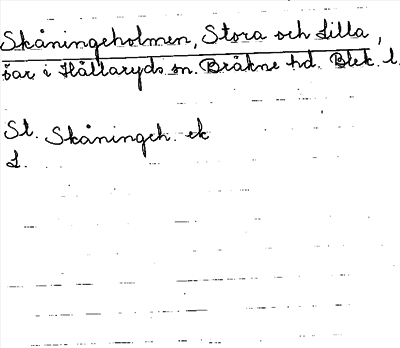 Skåningeholmen, Stora och Lilla,
öar i Hällaryds sn. Bräkne hd. Blek. l.
St. Skåningeh. ek
L.